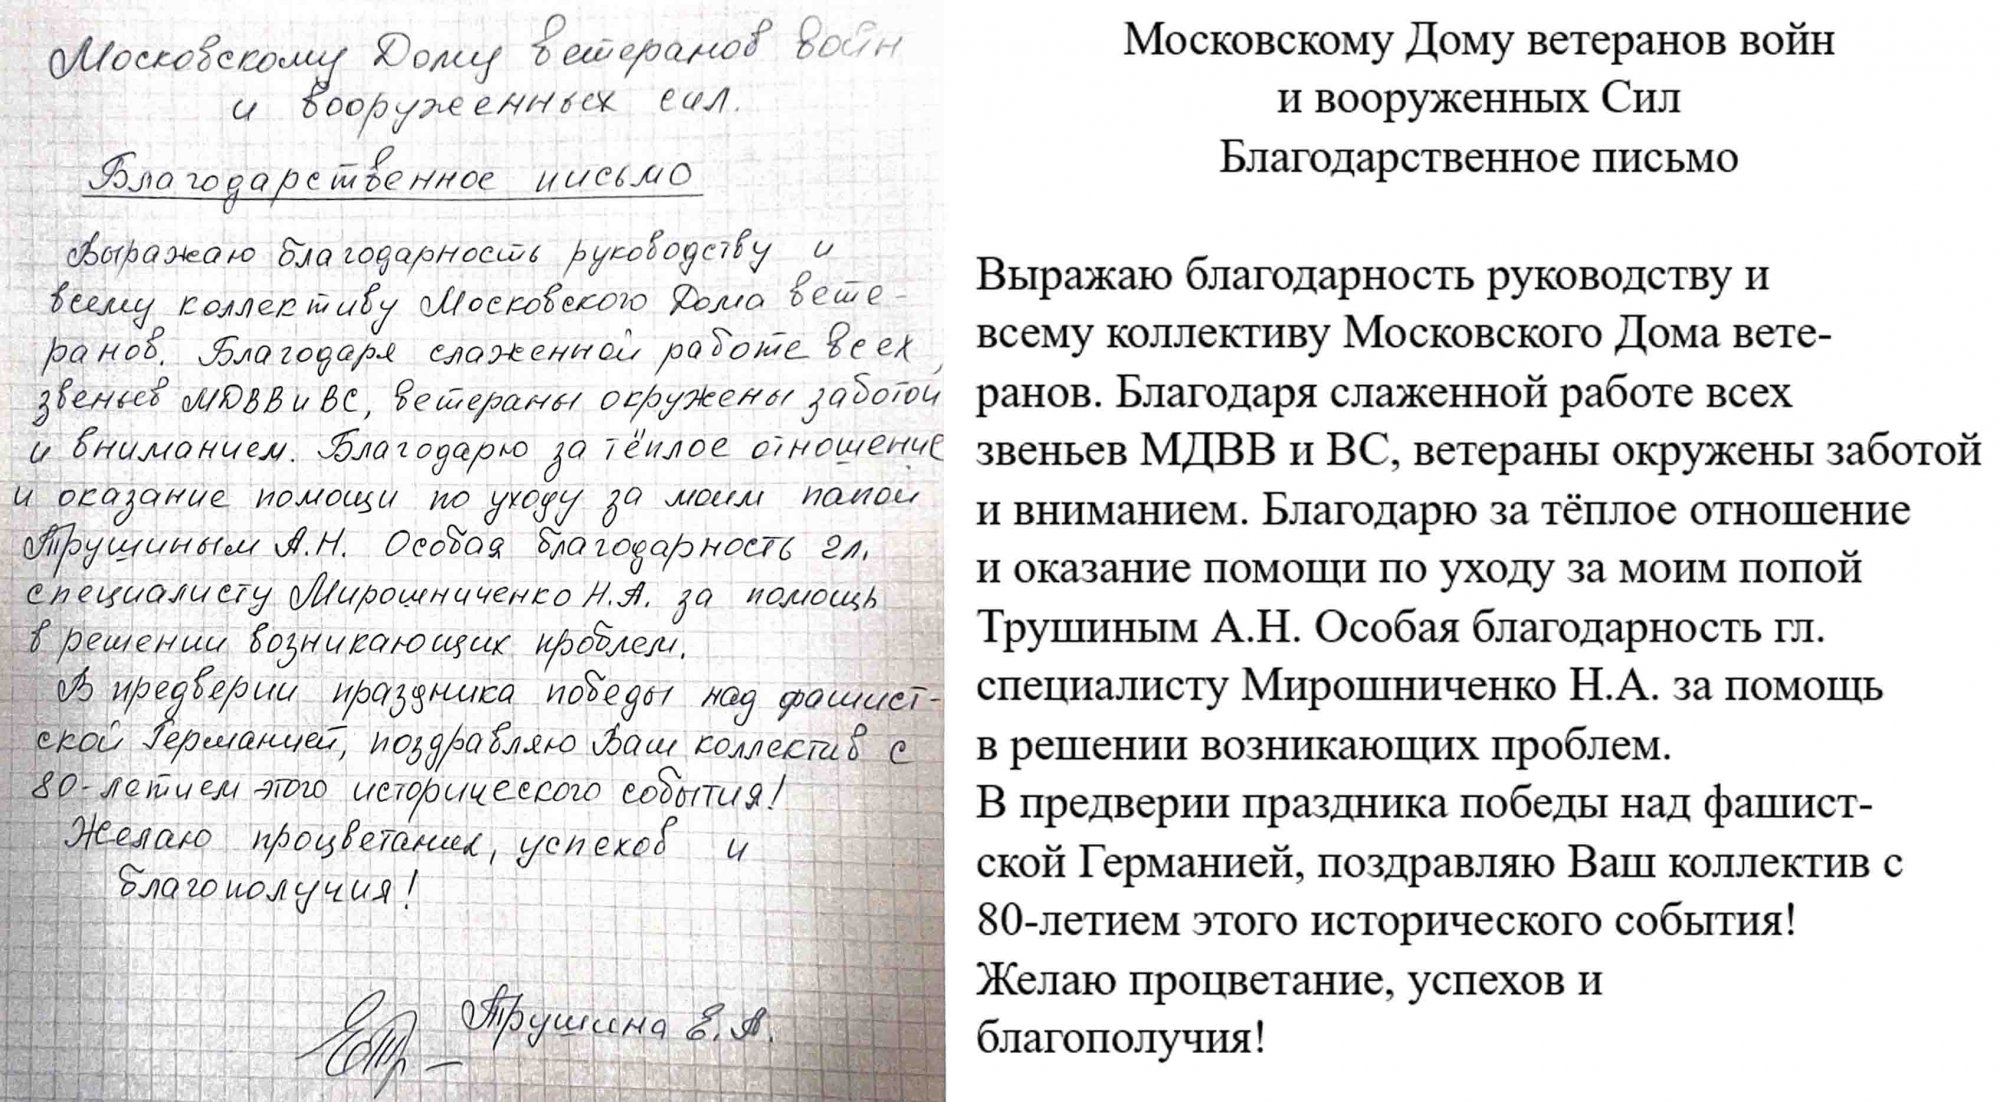 Московскому Дому ветеранов войн
и вооруженных сил.
Благодарственное письмо
Выражаю благодарность руководству и
всему коллективу Московского Дома вете-
ранов. Благодаря слаженной работе всех
звеньев МДВВ и ВС, ветераны окружены заботой
и вниманием. Благодарю за тёплое отношение
и оказание помощи по уходу за моим папой
Трушиным А.Н. Особая благодарность гл.
специалисту Мирошниченко Н.А. за помощь
в решении возникающих проблем.
В предверии праздника победы над фашист-
ской Германией, поздравляю Ваш коллектив с
80-летием этого исторического события!
Желаю процветания, успехов и
благополучия!
Трушина Е.А.
Московскому Дому ветеранов войн
и вооруженных Сил
Благодарственное письмо
Выражаю благодарность руководству и
всему коллективу Московского Дома вете-
ранов. Благодаря слаженной работе всех
звеньев МДВВ и ВС, ветераны окружены заботой
и вниманием. Благодарю за тёплое отношение
и оказание помощи по уходу за моим попой
Трушиным А.Н. Особая благодарность гл.
специалисту Мирошниченко Н.А. за помощь
в решении возникающих проблем.
В предверии праздника победы над фашист-
ской Германией, поздравляю Ваш коллектив с
80-летием этого исторического события!
Желаю процветание, успехов и
благополучия!